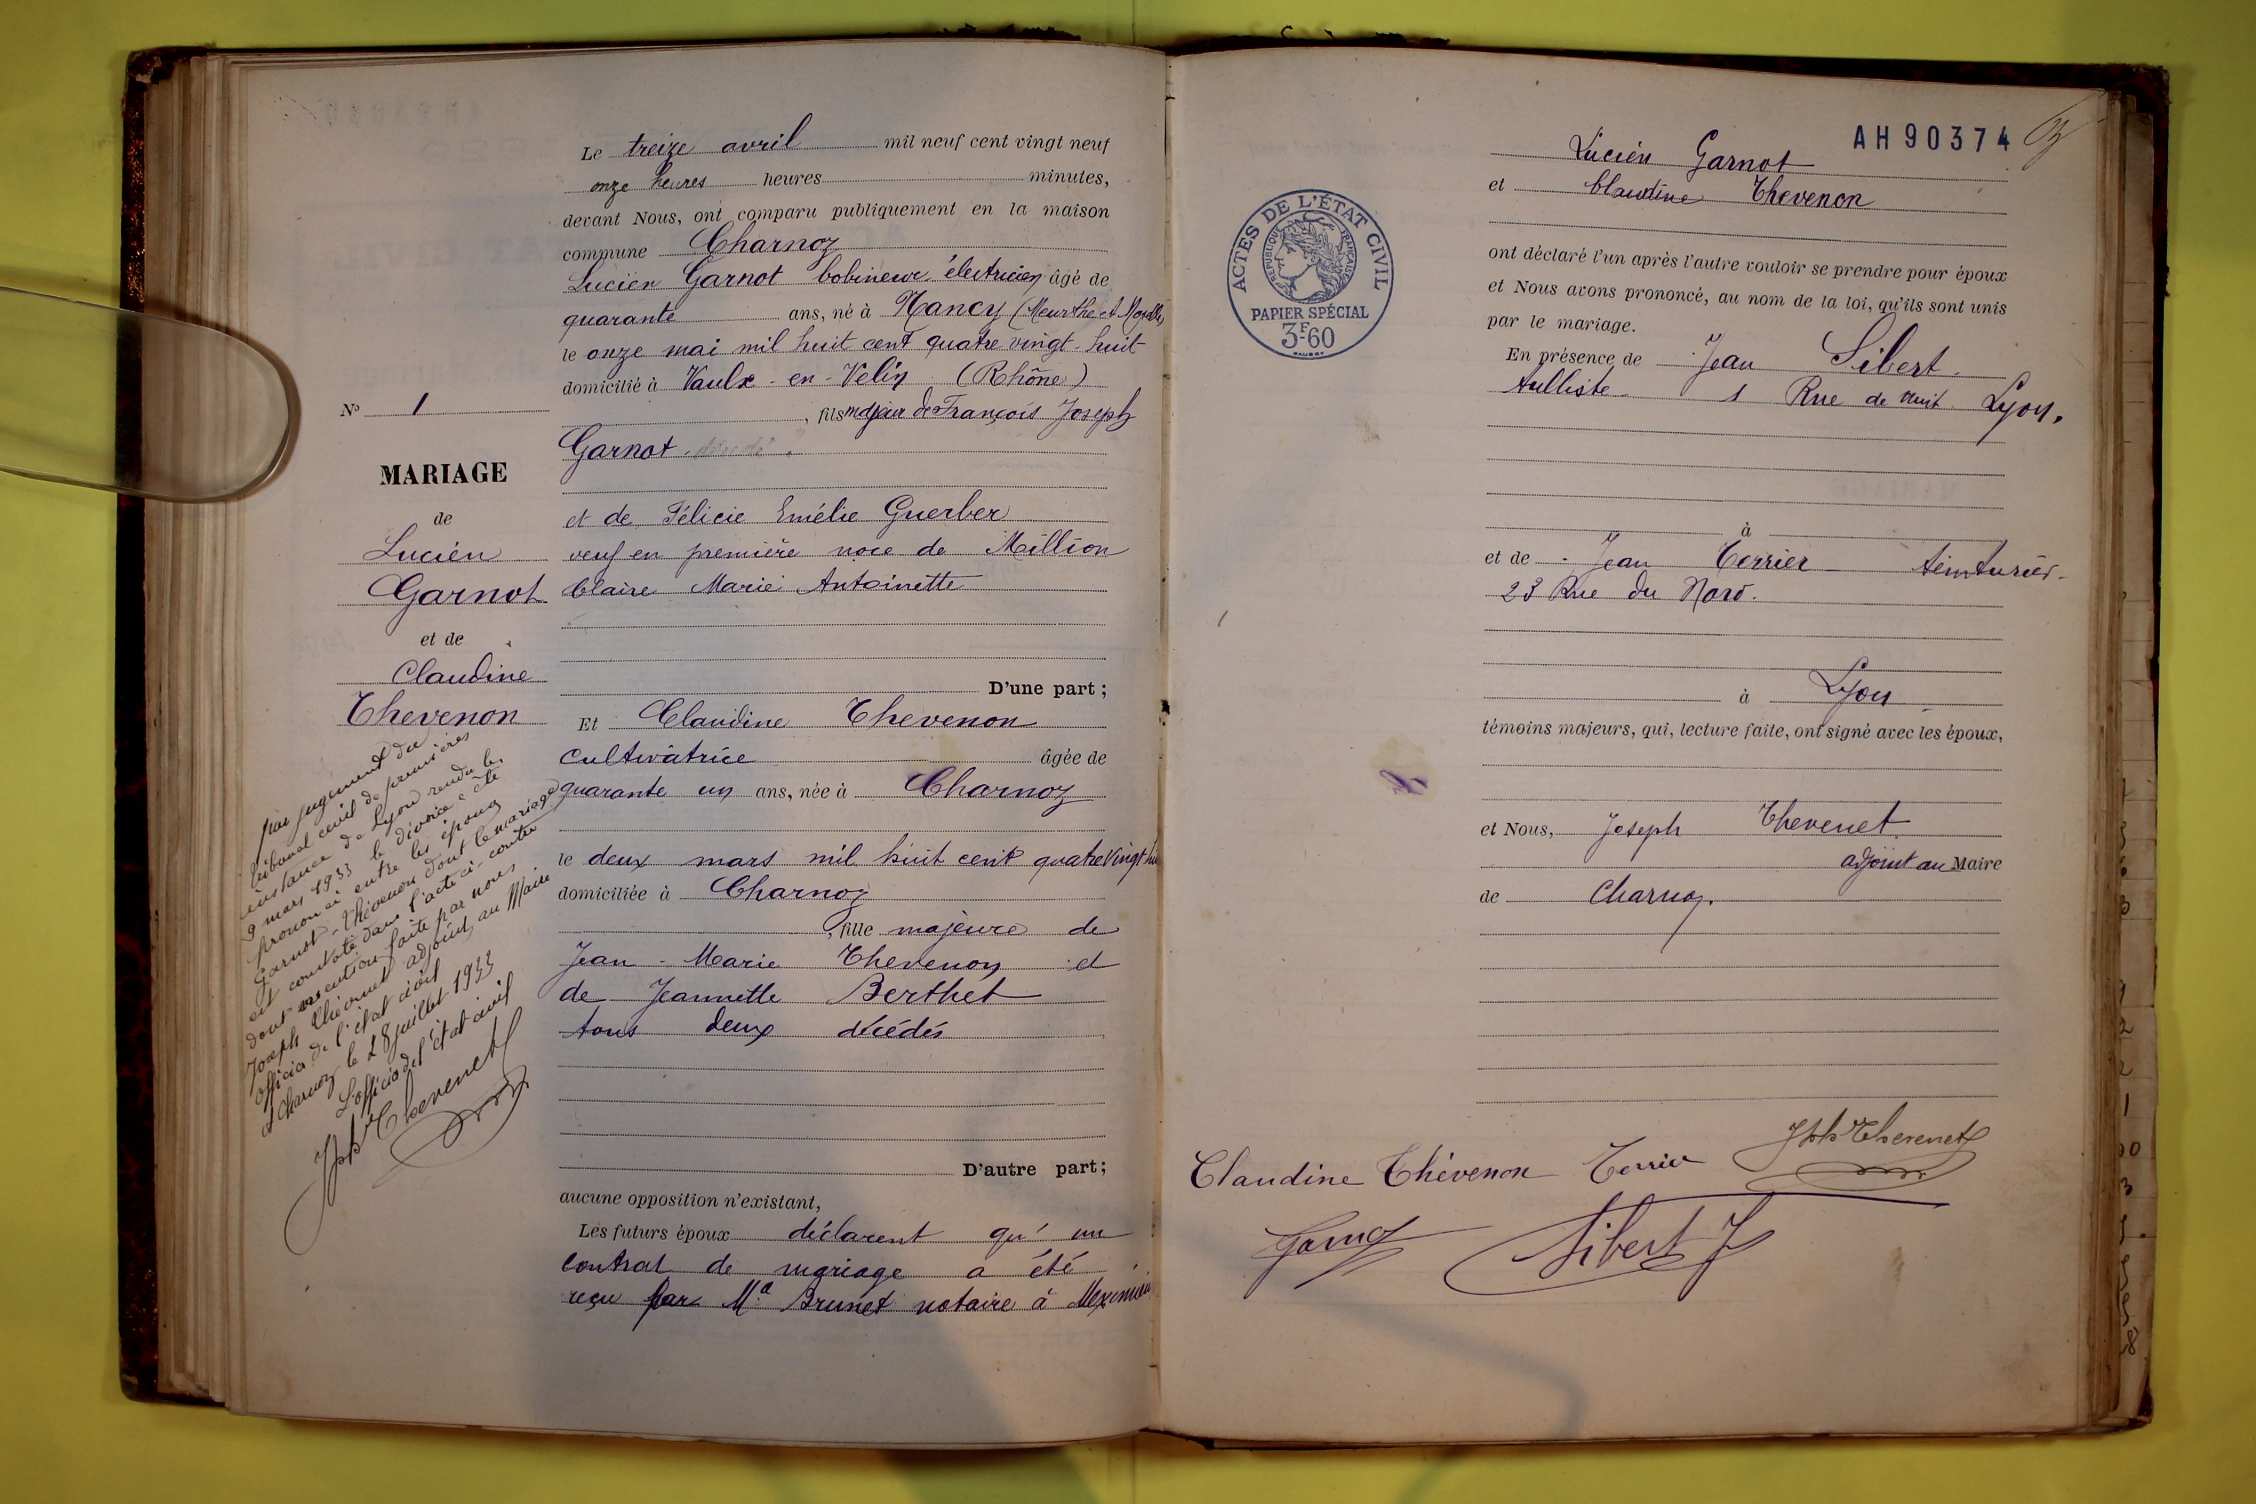 Le treize avril mil neuf cent vingt neuf
onze heures heures minutes,
devant Nous, ont comparu publiquement en la maison
commune Charnoz
Lucien Garnot bobineur électricien âgé de
quarante ans, né à Nancy (Meurthe et Moselle)
le onze mai mil huit cent quatre vingt-huit
domicilié à Vaulx-en-Velin (Rhône)
, fils majeur de François Joseph
Garnot
et de Félicie Emélie Guerber
veuf en première noce de Million
Claire Marie Antoinette
D'une part ;
Et Claudine Thevenon
cultivatrice âgée de
quarante un ans, née à Charnoz
le deux mars mil huit cent quatre vingt hui
domiciliée à Charnoz
, fille majeure de
Jean-Marie Thevenon et
de Jeannette Berthet
tous deux décédés
D'autre part ;
aucune opposition n'existant,
Les futurs époux déclarent qu'un
contrat de mariage a été
reçu par Me Brunet notaire à Meximieu
No 1
MARIAGE
de
Lucien
Garnot
et de
Claudine
Thevenon
par jugement du
tribunal civil de premières
instance de Lyon rendu le
9 mars 1933 le divorce a été
prononcé entre les époux
Garnot-Thévenon dont le mariage
est constaté dans l'acte ci-contre
dont mention faite par nous
Joseph Thévenet adjoint au Maire
officier de l'état civil
à Charnoz le 28 juillet 1933
L'officier de l'état civil
Jph Thevenet
AH90374
Lucien Garnot
et Claudine Thevenon
ont déclaré l'un après l'autre vouloir se prendre pour époux
et Nous avons prononcé, au nom de la loi, qu'ils sont unis
par le mariage.
En présence de Jean Sibert.
tulliste 1 Rue de nuit Lyon.
à
et de Jean Terrier teinturier
23 Rue du Nord.
à Lyon
témoins majeurs, qui, lecture faite, ont signé avec les époux,
et Nous, Joseph Thevenet
adjoint au Maire
de Charnoz.
ACTES DE L'ÉTAT CIVIL
RÉPUBLIQUE FRANÇAISE
PAPIER SPÉCIAL
3F60
Claudine Thévenon Terrier Jph Thevenet
Garnot Sibert J